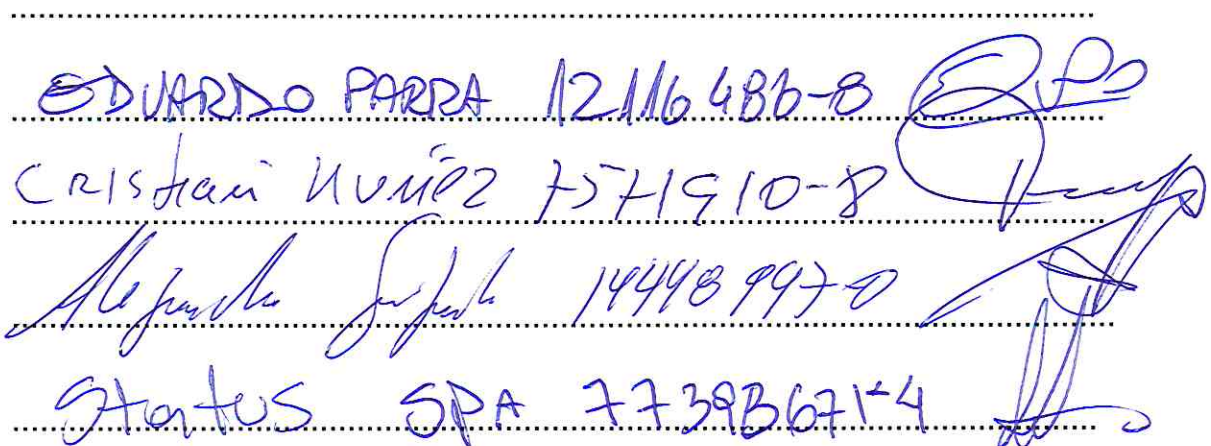 EDUARDO PARRA 12116486-8
CRISTIAN NUÑEZ 7571910-8
Alejandro 14448997-0
Status SPA 77398671-4